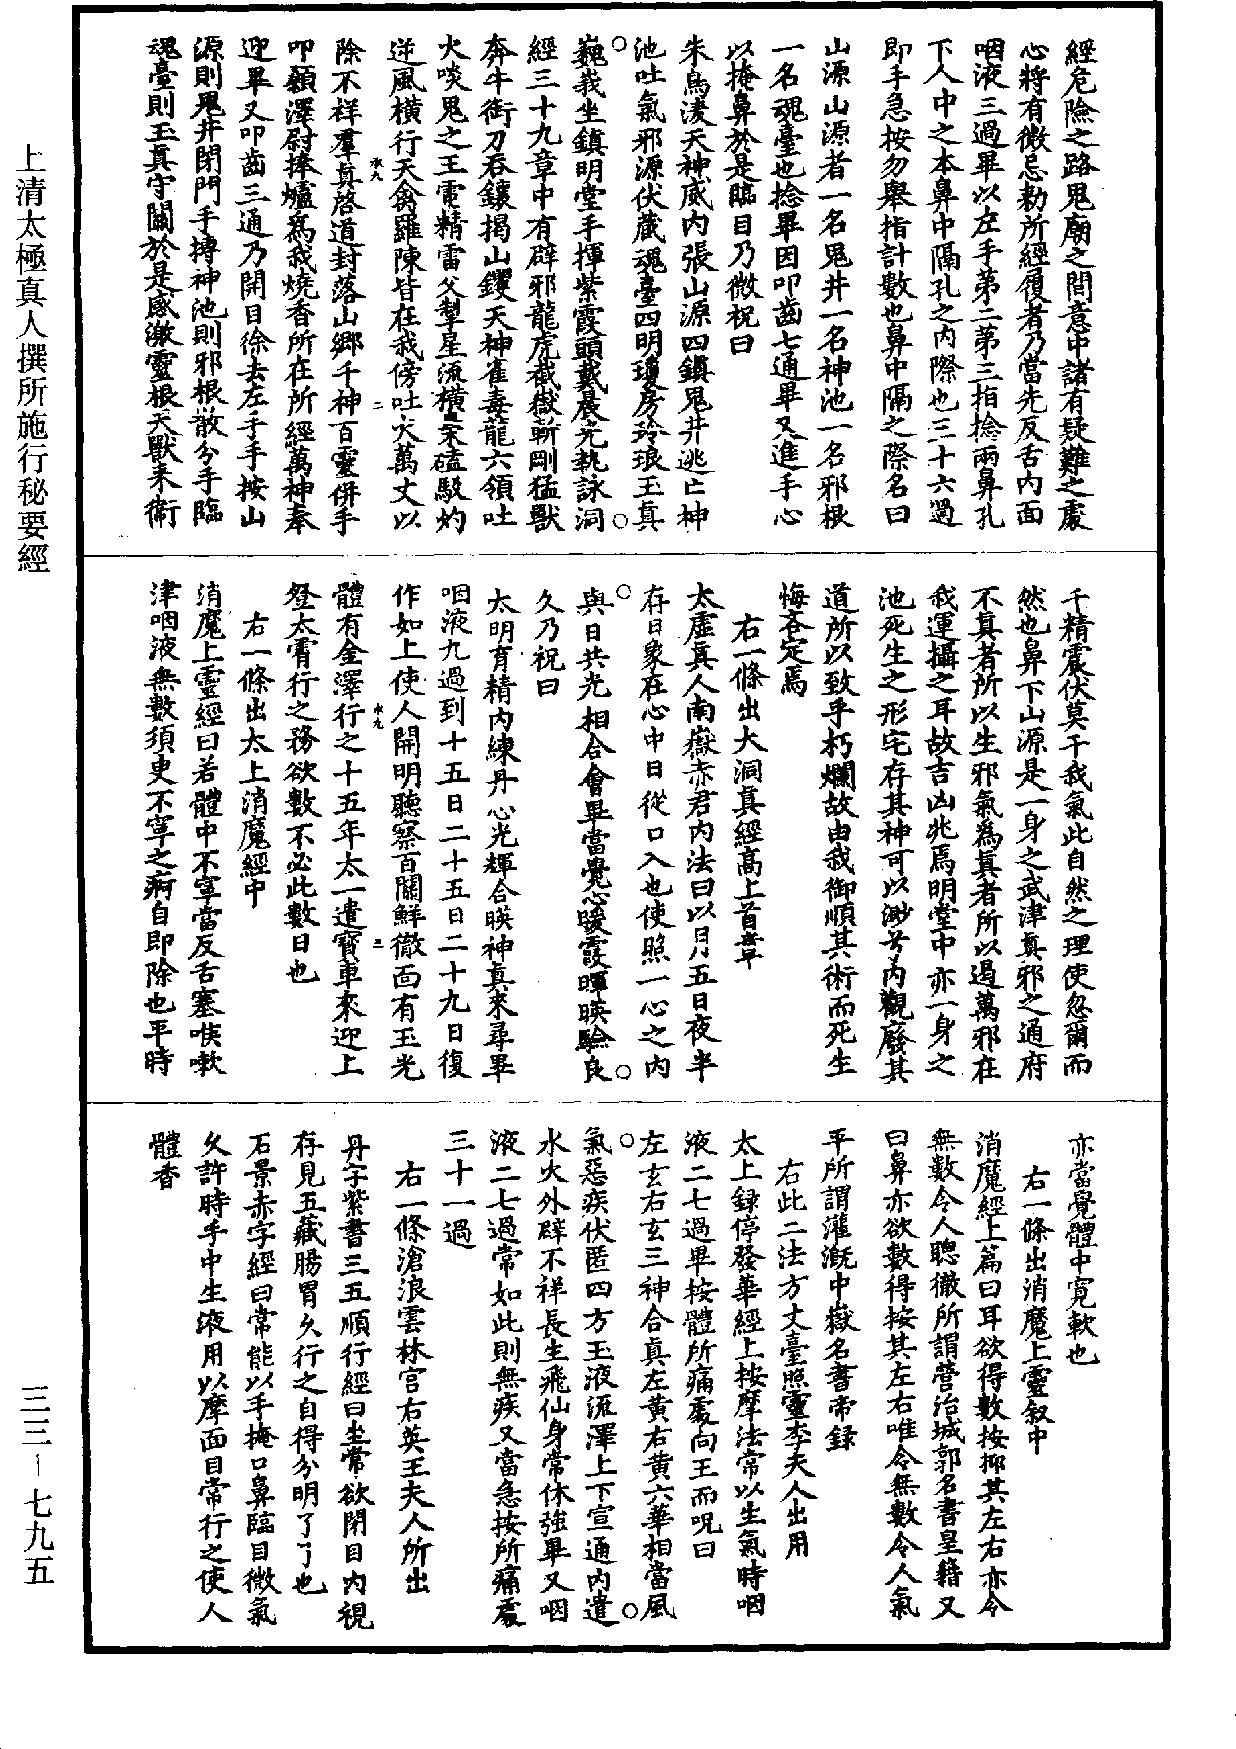 上清太極真人撰所施行秘要經
三三－七九五
經危險之路鬼廟之間意中諸有疑難之處
心將有微忌勑所經履者乃當先反舌內面
咽液三過畢以左手第二第三指捻兩鼻孔
下人中之本鼻中隔孔之內際也三十六過
即手急按勿舉指計數也鼻中隔之際名曰
山源山源者一名鬼井一名神池一名邪根
一名魂臺也捻畢因叩齒七通畢又進手心
以掩鼻於是臨目乃微祝曰
朱鳥凌天神威內張山源四鎮鬼井逃亡神
池吐氣邪源伏藏魂臺四明瓊房玲琅玉真
巍峩坐鎮明堂手揮紫霞頭戴晨光執詠洞
經三十九章中有辟邪龍虎截嶽斬剛猛獸
奔牛銜刀吞鑲揭山钁天神雀毒龍六領吐
火啖鬼之王電精雷父掣星流橫梟磕駮灼
逆風橫行天禽羅陳皆在我傍吐火萬丈以
除不祥羣真啓道封落山鄉千神百靈併手
叩額澤尉捧爐爲我燒香所在所經萬神奉
迎畢又叩齒三通乃開目徐去左手手按山
源則鬼井閉門手摶神池則邪根散分手臨
魂臺則玉真守關於是感激靈根天獸來衛
千精震伏莫干我氣此自然之理使忽爾而
然也鼻下山源是一身之武津真邪之通府
不真者所以生邪氣爲真者所以遏萬邪在
我運攝之耳故吉凶兆焉明堂中亦一身之
池死生之形宅存其神可以渺兮內觀廢其
道所以致乎朽爛故由我御順其術而死生
悔吝定焉
右一條出大洞真經高上首章
太虛真人南嶽赤君內法曰以月五日夜半
存日象在心中日從口入也使照一心之內
與日共光相合會畢當覺心暖霞暉暎驗良
久乃祝曰
太明育精內練丹心光輝合暎神真來尋畢
咽液九過到十五日二十五日二十九日復
作如上使人開明聽察百關鮮徹面有玉光
體有金澤行之十五年太一遣寶車來迎上
登太霄行之務欲數不必此數日也
右一條出太上消魔經中
消魔上靈經曰若體中不寧當反舌塞喉嗽
津咽液無數須臾不寧之痾自即除也平時
亦當覺體中寬軟也
右一條出消魔上靈叙中
消魔經上篇曰耳欲得數按抑其左右亦令
無數令人聰徹所謂營治城郭名書皇籍又
曰鼻亦欲數得按其左右唯令無數令人氣
平所謂灌溉中嶽名書帝録
右此二法方丈臺照靈李夫人出用
太上録停發華經上按摩法常以生氣時咽
液二七過畢按體所痛處向王而呪曰
左玄右玄三神合真左黄右黄六華相當風
氣惡疾伏匿四方玉液流澤上下宣通內遣
水火外辟不祥長生飛仙身常休強畢又咽
液二七過常如此則無疾又當急按所痛處
三十一過
右一條滄浪雲林宮右英王夫人所出
丹字紫書三五順行經曰坐常欲閉目內視
存見五藏腸胃久行之自得分明了了也
石景赤字經曰常能以手掩口鼻臨目微氣
久許時手中生液用以摩面目常行之使人
體香